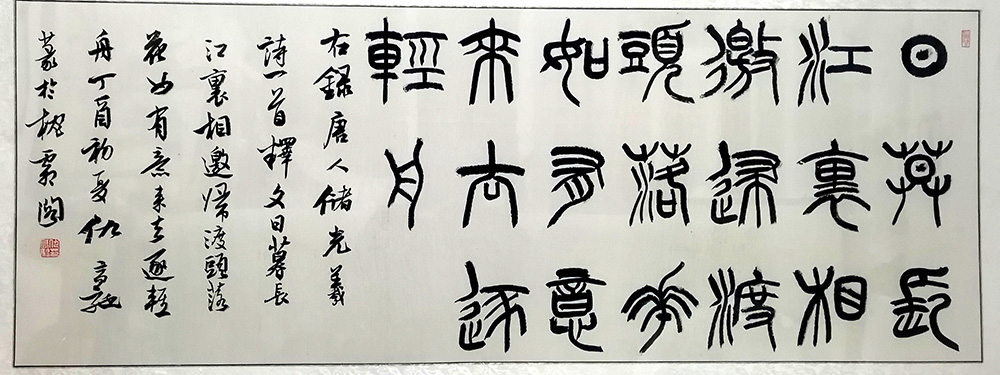 日莫長
江裏相
邀歸渡
頭落花
如有意
來去逐
輕舟
右錄唐人儲光羲
詩一首釋文日暮長
江裏相邀歸渡頭落
花如有意來去逐輕
舟丁酉初夏仇高
篆於閣